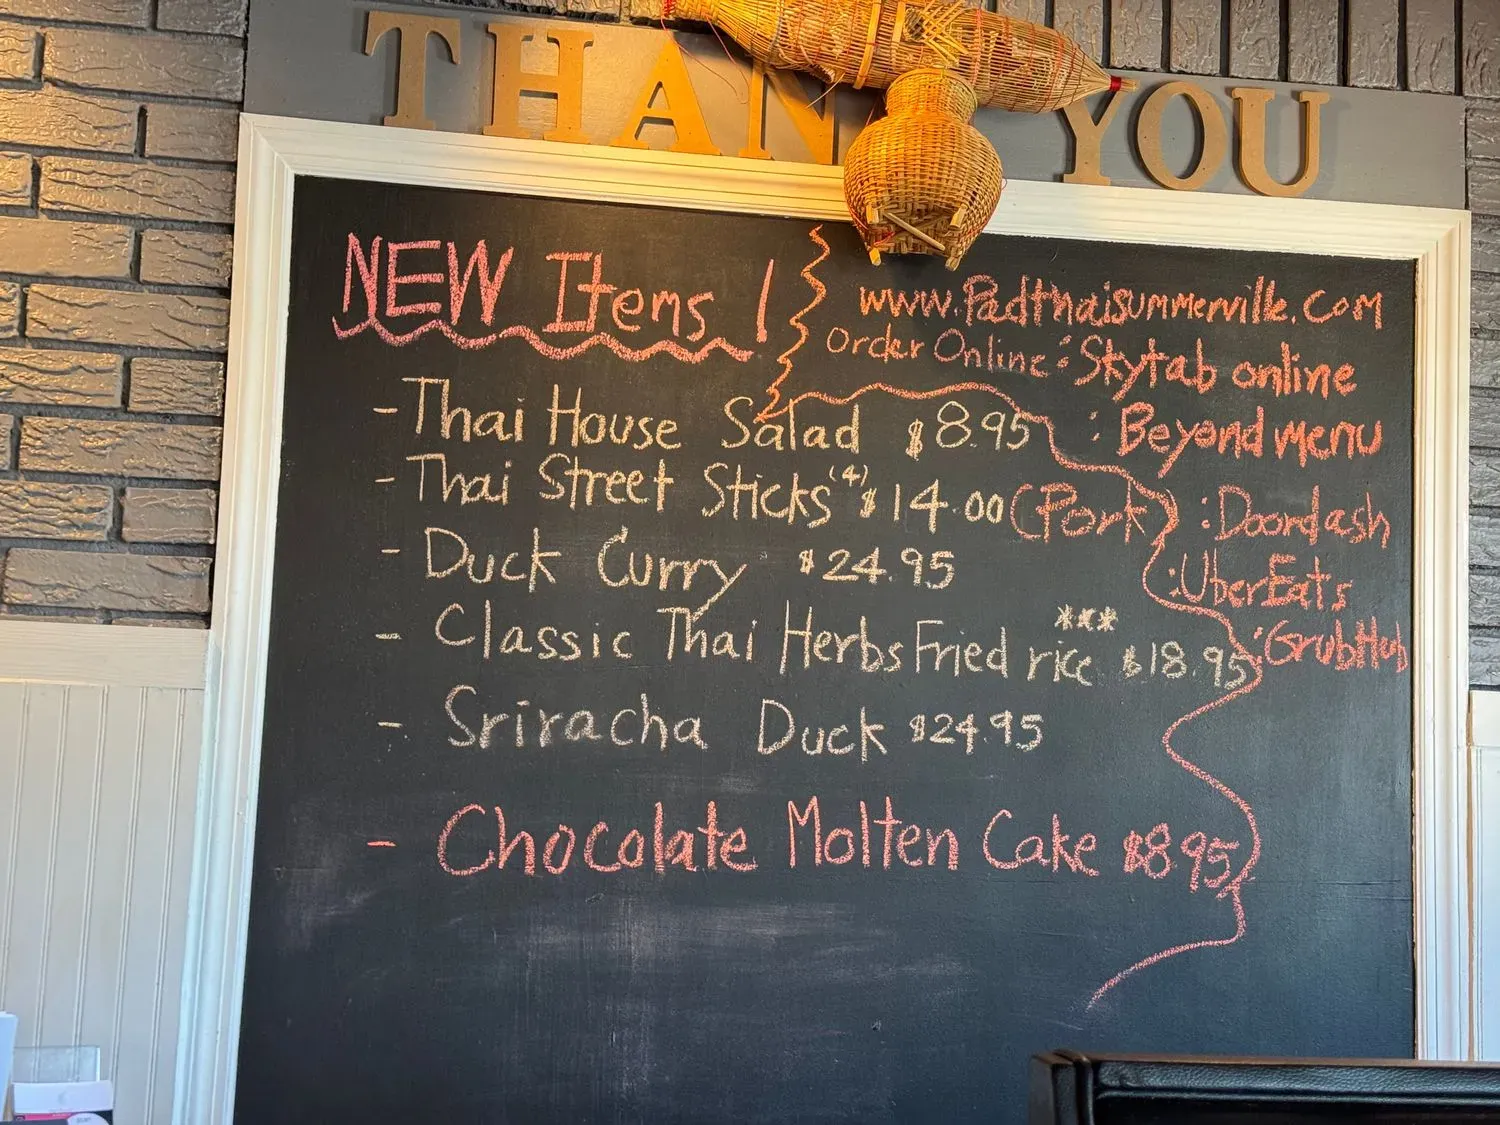 THAN YOU
NEW Items !
- Thai House Salad $8.95
- Thai Street Sticks (4) $14.00 (Pork)
- Duck Curry $24.95
- Classic Thai Herbs Fried rice *** $18.95
- Sriracha Duck $24.95
- Chocolate Molten Cake $8.95
www.Padthaisummerville.com
Order Online : Skytab online
: Beyond menu
: Doordash
: UberEats
: GrubHub